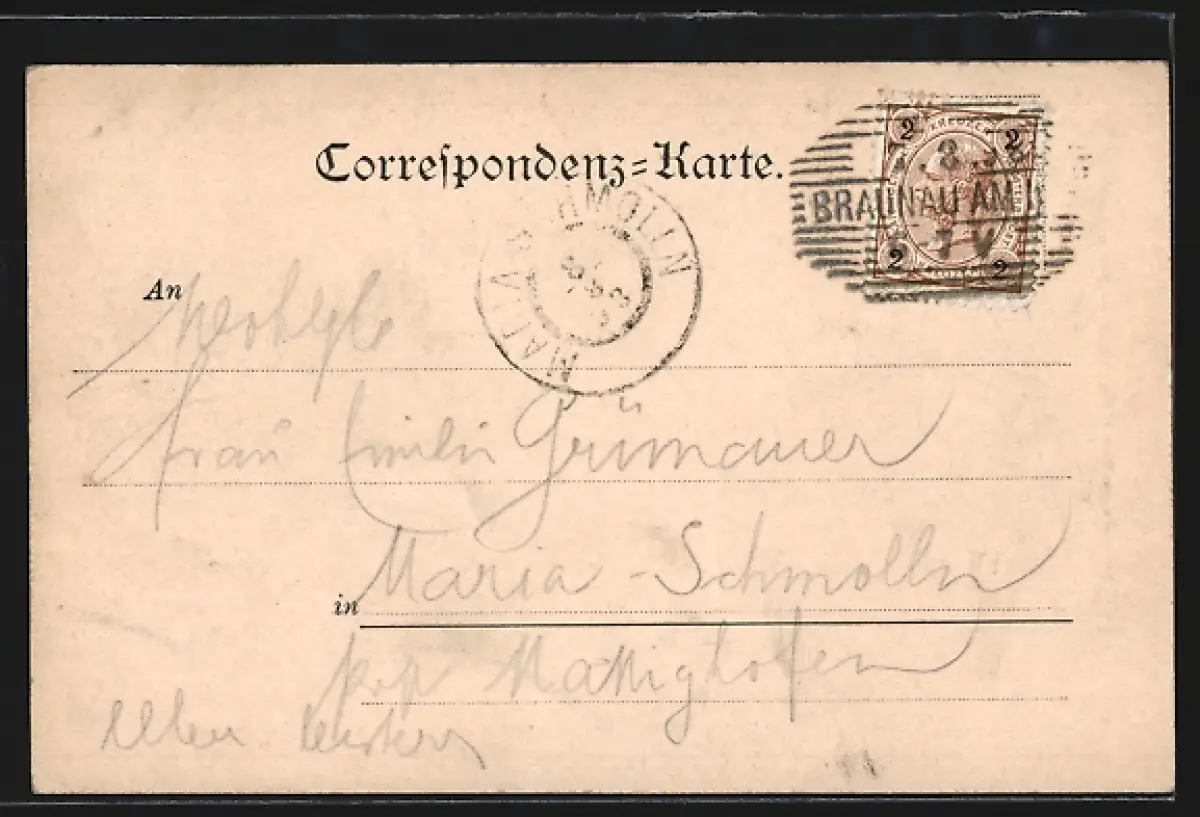 Correspondenz-Karte.
2 KREUZER 2
8
BRAUNAU AM I
7 V
2 2
MARIA SCHMOLLN
An
Frau Emilie Grünauer
in Maria-Schmolln
post Mattighofen